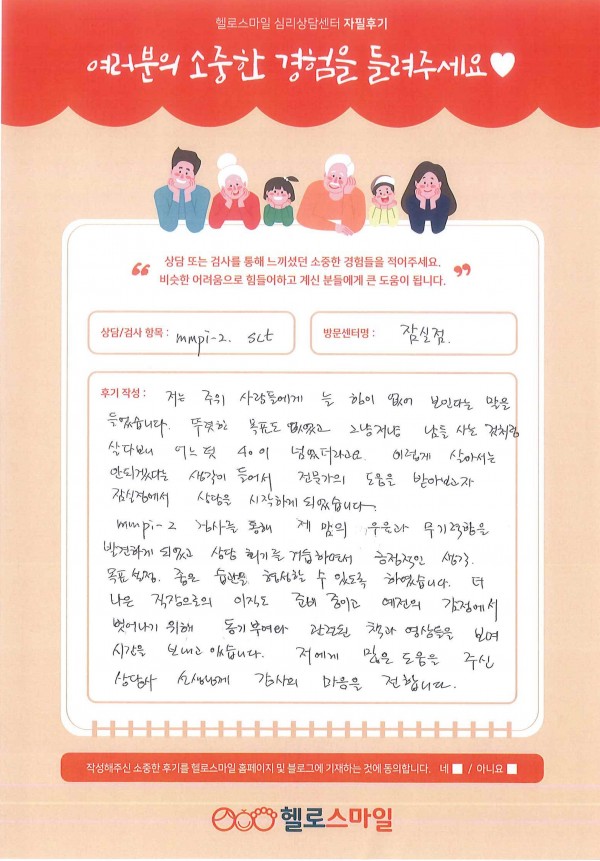 헬로스마일 심리상담센터 자필후기
여러분의 소중한 경험을 들려주세요♥
“ 상담 또는 검사를 통해 느끼셨던 소중한 경험들을 적어주세요.
비슷한 어려움으로 힘들어하고 계신 분들에게 큰 도움이 됩니다. ”
상담/검사 항목 : mmpi-2. sct
방문센터명 : 잠실점.
후기 작성 : 저는 주위 사람들에게 늘 힘이 없어 보인다는 말을
들었습니다. 뚜렷한 목표도 없었고 그냥저냥 남들 사는 것처럼
살다보니 어느덧 40이 넘었더라고요. 이렇게 살아서는
안되겠다는 생각이 들어서 전문가의 도움을 받아보고자
잠실점에서 상담을 시작하게 되었습니다.
mmpi-2 검사를 통해 제 맘의 우울과 무기력함을
발견하게 되었고 상담 회기를 거듭하면서 긍정적인 생각.
목표설정. 좋은 습관을 형성할 수 있도록 하였습니다. 더
나은 직장으로의 이직도 준비 중이고 예전의 감정에서
벗어나기 위해 동기부여와 관련된 책과 영상들을 보며
시간을 보내고 있습니다. 저에게 많은 도움을 주신
상담사 선생님께 감사의 마음을 전합니다.
작성해주신 소중한 후기를 헬로스마일 홈페이지 및 블로그에 기재하는 것에 동의합니다. 네 ■ / 아니요 ■
헬로스마일